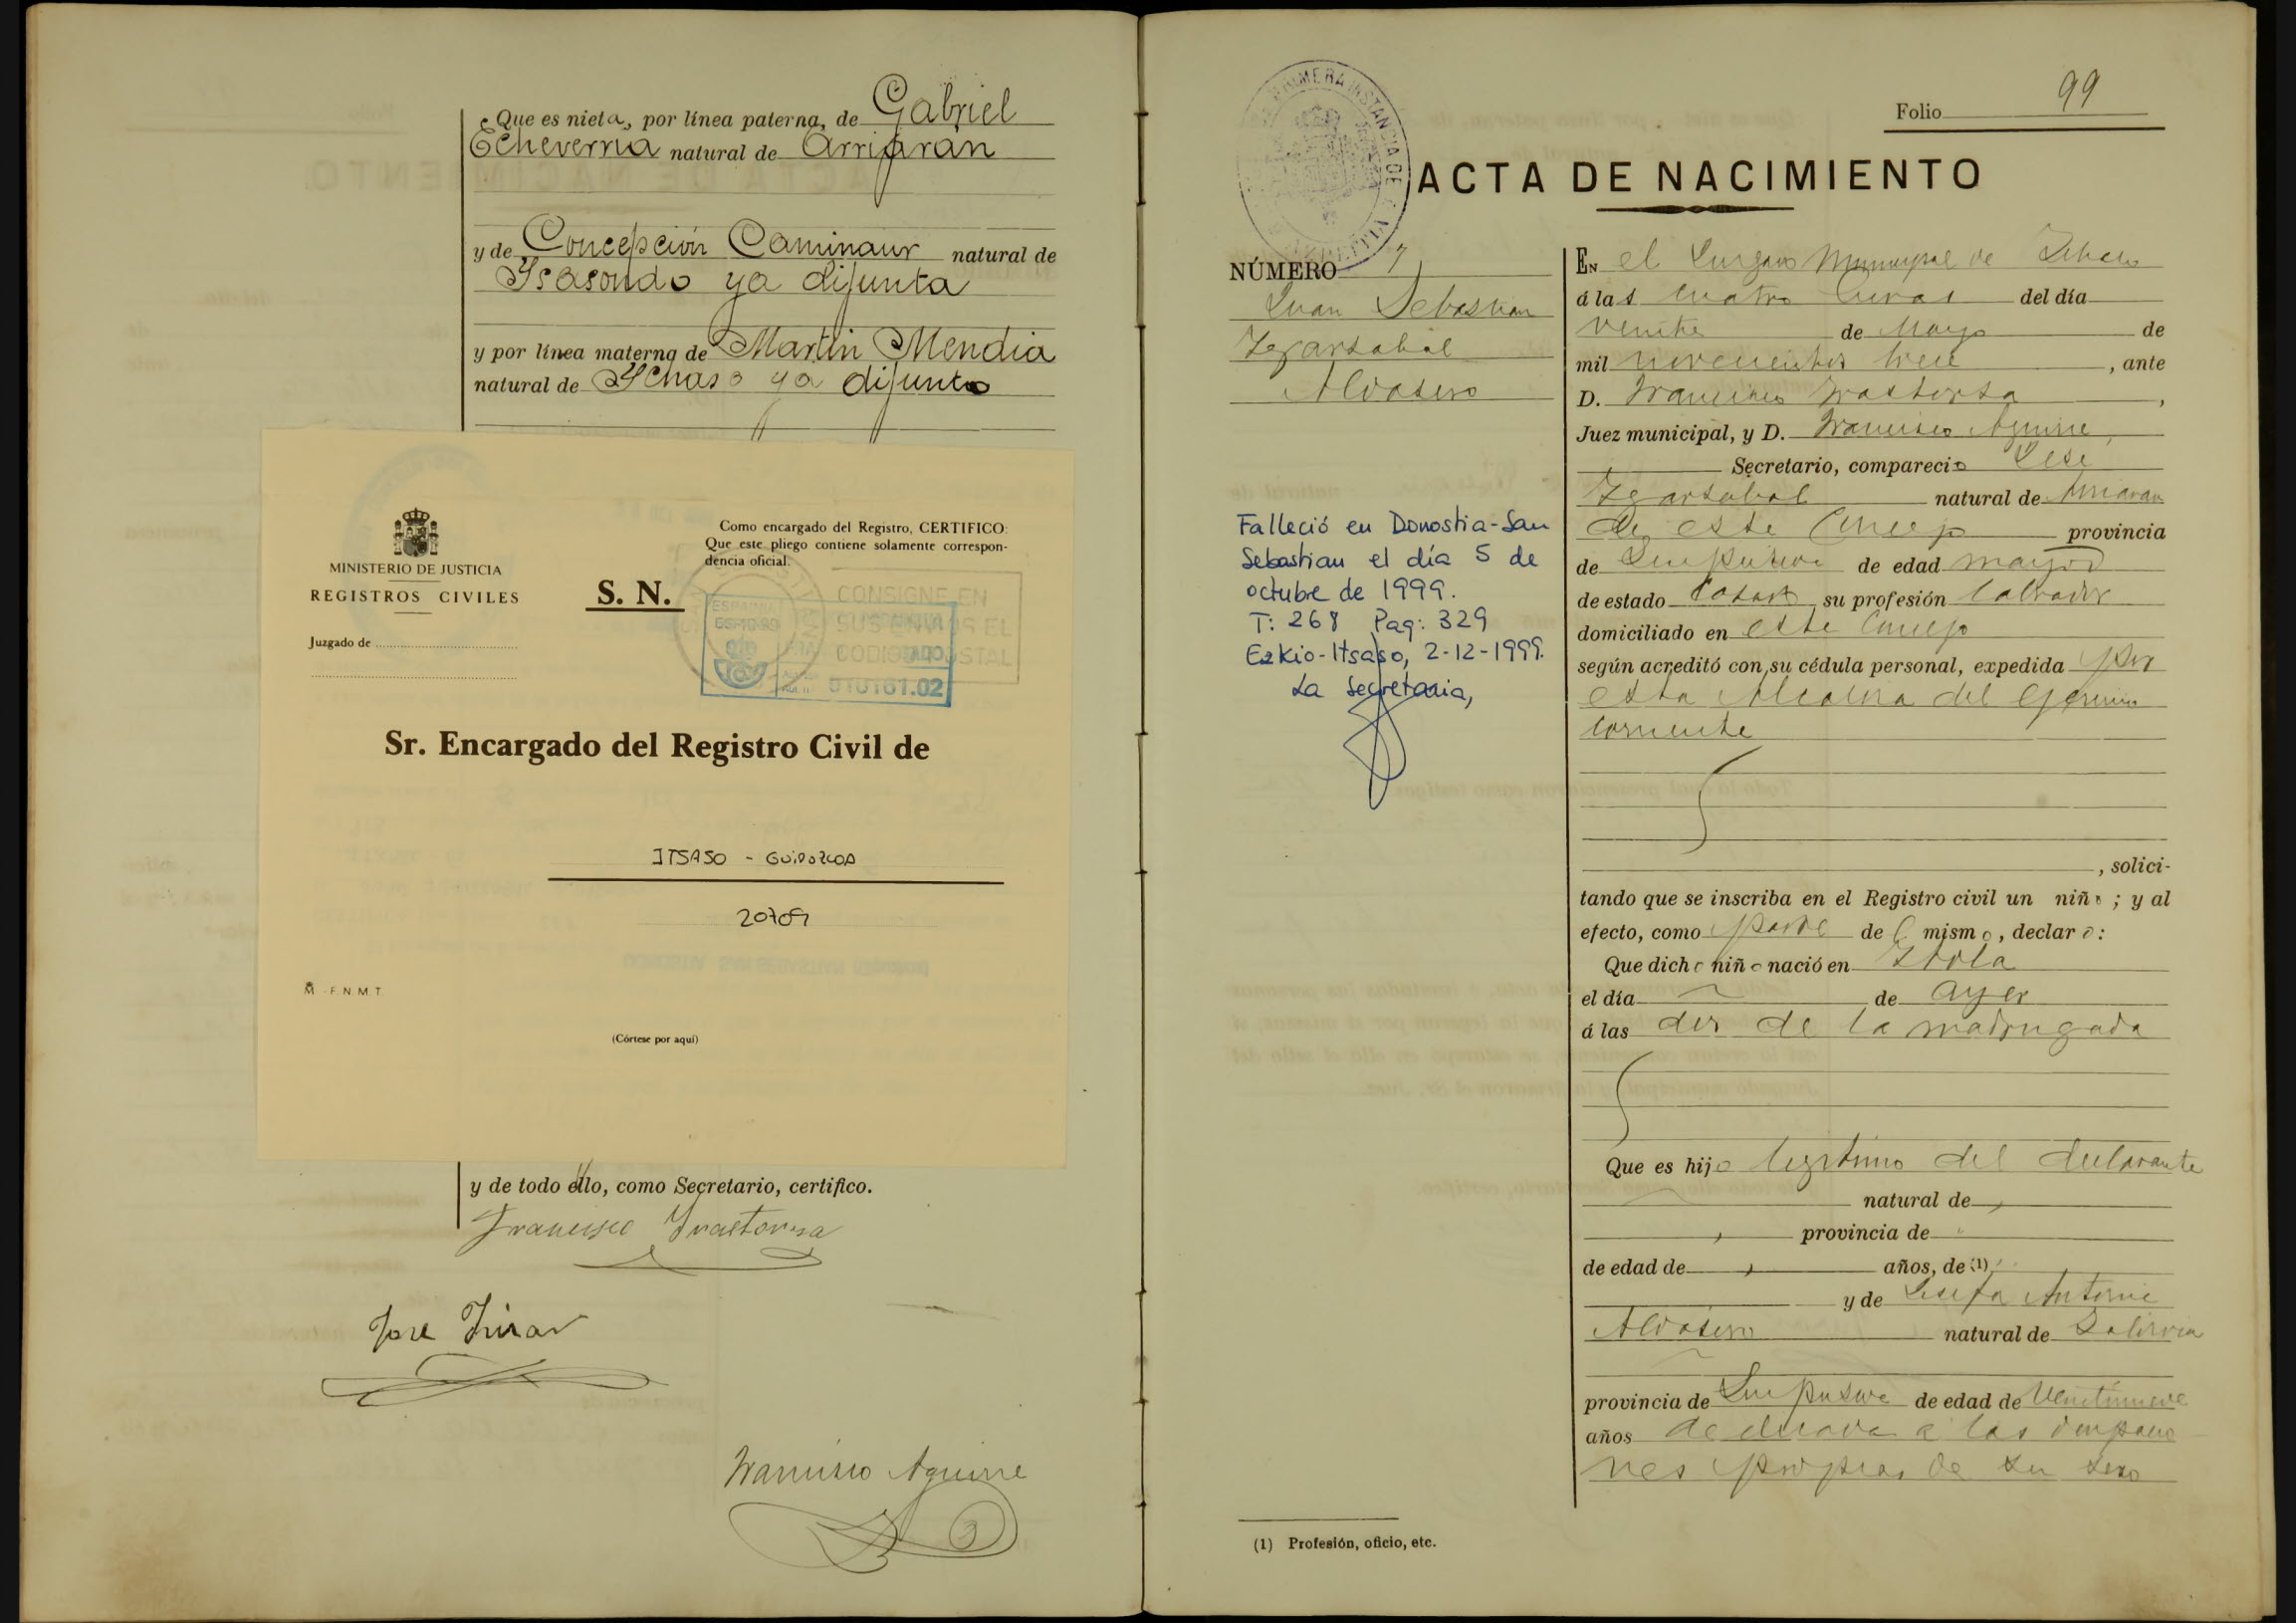 Que es nieta, por línea paterna, de Gabriel
Echeverria natural de Arriaran
y de Concepción Caminaur natural de
Ysasondo ya difunta
y por línea materna de Martin Mendia
natural de Ychaso ya difunto
MINISTERIO DE JUSTICIA
REGISTROS CIVILES
Juzgado de
S. N.
Como encargado del Registro, CERTIFICO:
Que este pliego contiene solamente correspon-
dencia oficial.
CONSIGNE EN
SUS ENVIOS EL
CODIGO POSTAL
010161.02
Sr. Encargado del Registro Civil de
ITSASO - GUIPUZCOA
20709
F.N.M.T.
(Córtese por aquí)
y de todo ello, como Secretario, certifico.
Francisco Yrastorza
José
Francisco Aguirre
Folio 99
PRIMERA INSTANCIA DE
ACTA DE NACIMIENTO
NÚMERO 7
Juan Sebastian
Ygarzabal
Aldasoro
Falleció en Donostia-San
Sebastian el día 5 de
octubre de 1999.
T: 268 Pag: 329
Ezkio-Itsaso, 2-12-1999.
La Secretaria,
En el Juzgado Municipal de Ychaso
á las cuatro horas del día
veinte de Mayo de
mil novecientos trece, ante
D. Francisco Yrastorza,
Juez municipal, y D. Francisco Aguirre,
Secretario, compareció José
Ygarzabal natural de Arriaran
de este Concejo provincia
de Guipúzcoa de edad mayor
de estado casado su profesión labrador
domiciliado en este Concejo
según acreditó con su cédula personal, expedida por
esta Alcaldia del ejercicio
corriente
, solici-
tando que se inscriba en el Registro civil un niño; y al
efecto, como padre del mismo, declaró:
Que dicho niño nació en
el día de ayer
á las dos de la madrugada
Que es hijo legitimo del declarante
natural de
provincia de
de edad de años, de (1)
y de Josefa Antonia
Aldasoro natural de Zaldivia
provincia de Guipúzcoa de edad de veintinueve
años dedicada a las ocupacio
nes propias de su sexo
(1) Profesión, oficio, etc.